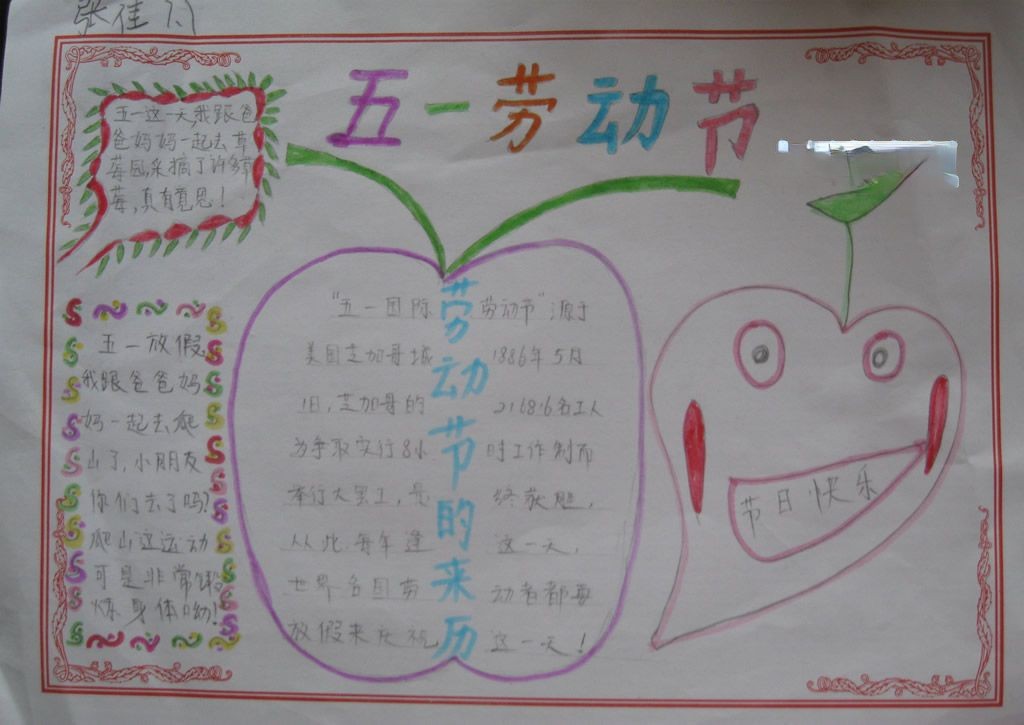 张佳
五一劳动节
五一这一天,我跟爸
爸妈妈一起去草
莓园,采摘了许多草
莓,真有意思!
五一放假
我跟爸爸妈
妈一起去爬
山了,小朋友
你们去了吗?
爬山这运动
可是非常锻
炼身体呦!
劳动节的来历
“五一国际劳动节”源于
美国芝加哥城 1886年5月
1日,芝加哥的 21.68.6名工人
为争取实行8小时工作制而
举行大罢工,是终获胜,
从此每年逢这一天,
世界各国劳动者都要
放假来庆祝这一天!
节日快乐